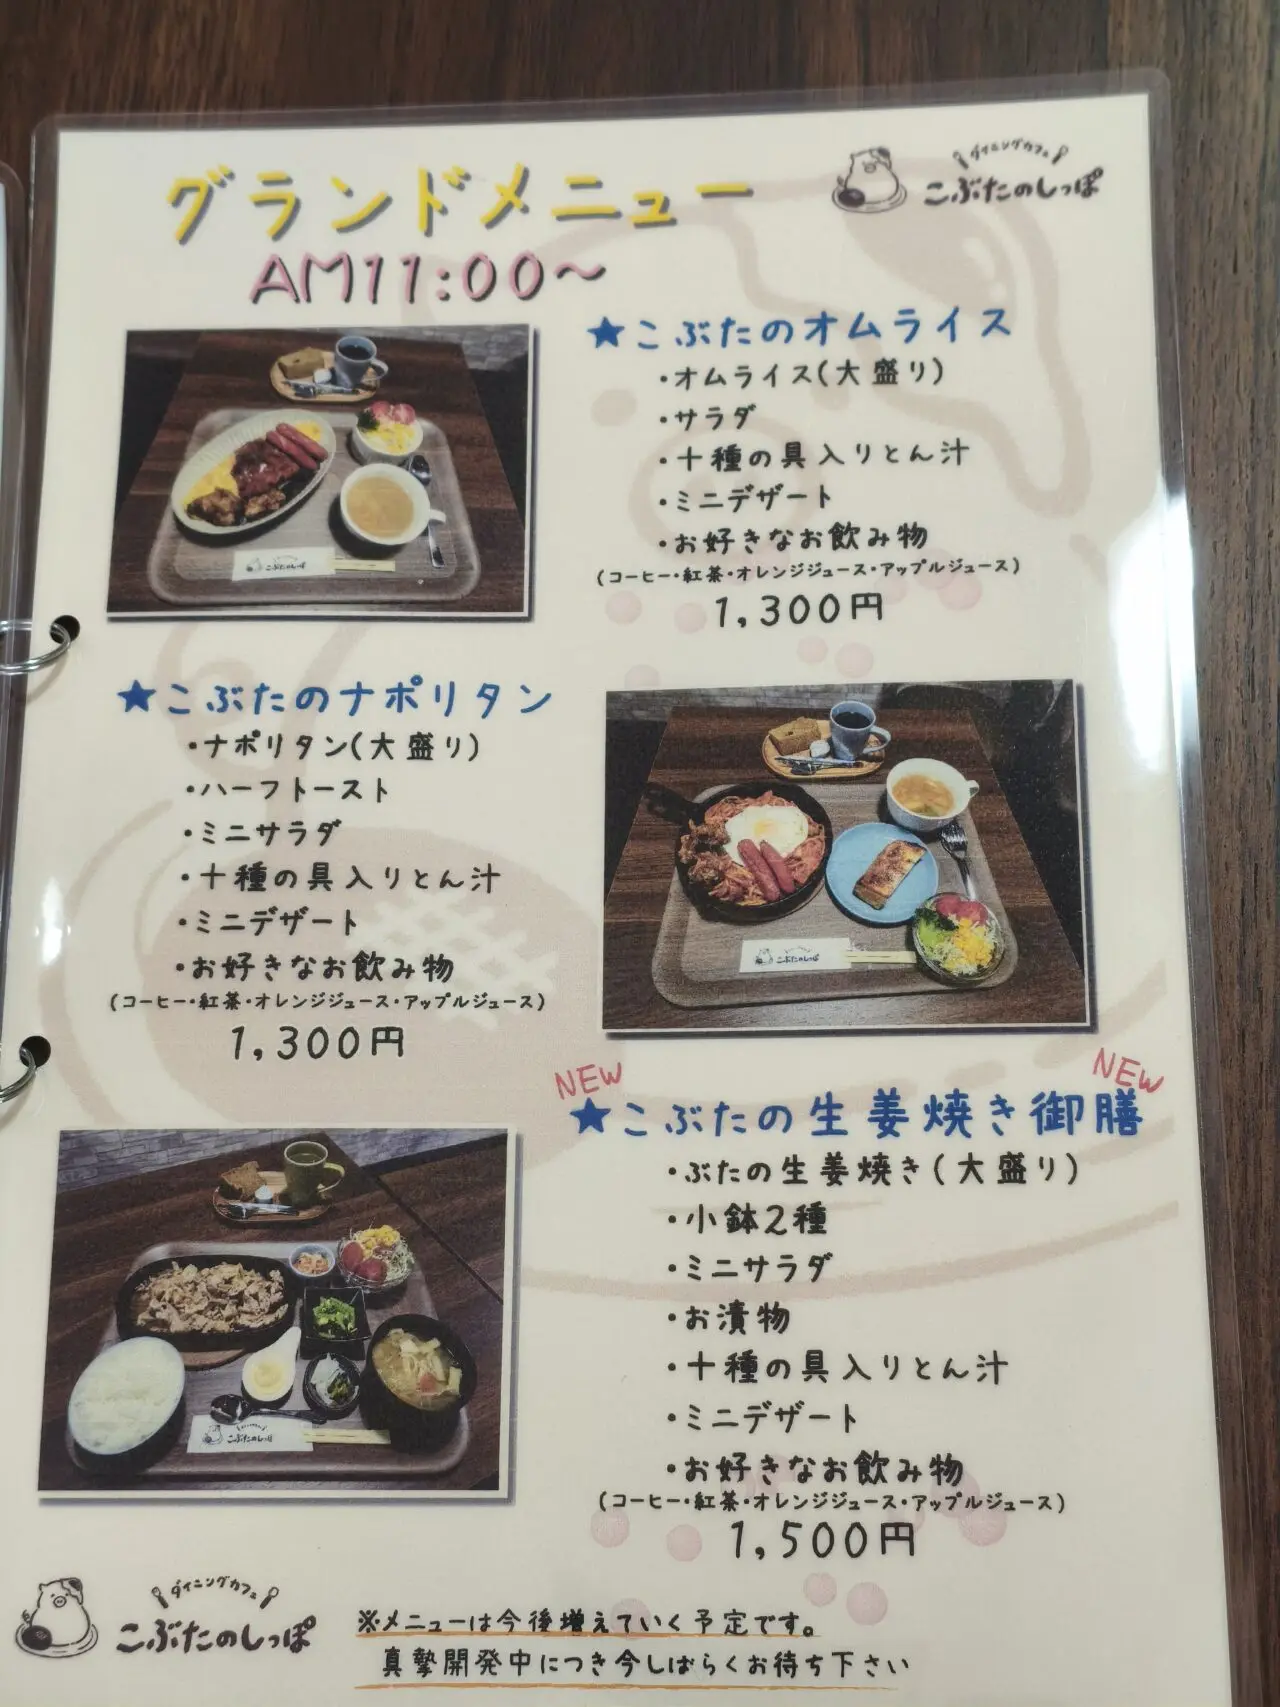 グランドメニュー
AM11:00～
ダイニングカフェ
こぶたのしっぽ
★こぶたのオムライス
・オムライス(大盛り)
・サラダ
・十種の具入りとん汁
・ミニデザート
・お好きなお飲み物
(コーヒー・紅茶・オレンジジュース・アップルジュース)
1,300円
こぶたのしっぽ
★こぶたのナポリタン
・ナポリタン(大盛り)
・ハーフトースト
・ミニサラダ
・十種の具入りとん汁
・ミニデザート
・お好きなお飲み物
(コーヒー・紅茶・オレンジジュース・アップルジュース)
1,300円
こぶたのしっぽ
NEW
NEW
★こぶたの生姜焼き御膳
・ぶたの生姜焼き(大盛り)
・小鉢2種
・ミニサラダ
・お漬物
・十種の具入りとん汁
・ミニデザート
・お好きなお飲み物
(コーヒー・紅茶・オレンジジュース・アップルジュース)
1,500円
こぶたのしっぽ
ダイニングカフェ
こぶたのしっぽ
※メニューは今後増えていく予定です。
真摯開発中につき今しばらくお待ち下さい